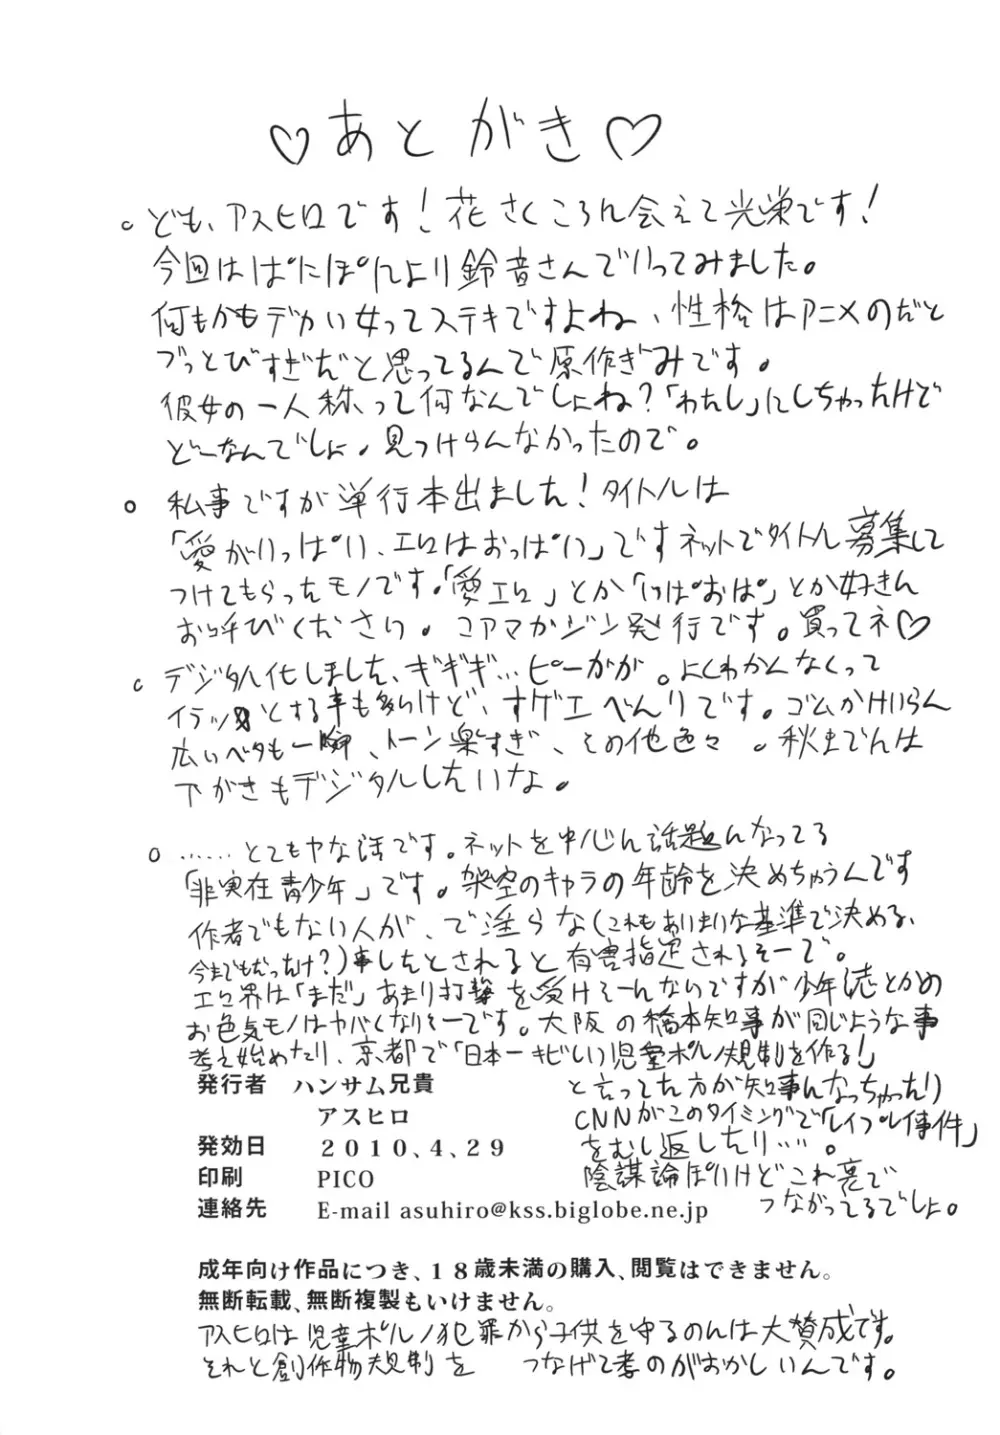 ♡あとがき♡
○ども、アスヒロです！花さくころに会えて光栄です！
今回はぱにぽにより鈴音さんでいってみました。
何もかもデカい女ってステキですよね、性格はアニメのだと
ブっとびすぎだと思ってるんで原作ぎみです。
彼女の一人称って何なんでしょね？「わたし」にしちゃったけど
どーなんでしょ。見つけらんなかったので。
○私事ですが単行本出ました！タイトルは
「愛がいっぱい、エロはおっぱい」ですネットでタイトル募集して
つけてもらったモノです。「愛エロ」とか「いぱおぱ」とか好きに
お呼びください。コアマガジン発行です。買ってネ♡
○デジタル化しました、ギギギ…ピーガガ。よくわかんなくって
イラッとする事も多いけど、すゲエべんりです。ゴムかけいらん
広いベタも一瞬、トーン楽すぎ、その他色々。秋までには
下がきもデジタルしたいな。
○……とてもヤな話です。ネットを中心に話題になってる
「非実在青少年」です。架空のキャラの年齢を決めちゃうんです
作者でもない人が、で淫らな(これもあいまいな基準で決める、
今までもだっけ？)事したとされると有害指定されるそーで。
エロ界は「まだ」あまり打撃を受けそーにないですが少年誌とかの
お色気モノはヤバくなりそーです。大阪の橋本知事が同じような事
考え始めたり、京都で「日本一キビしい児童ポルノ規制を作る！」
と言ってた方が知事になっちゃったり
CNNがこのタイミングで「レイプレイ事件」
をむし返したり…。
陰謀論ぽいけどこれ裏で
つながってるでしょ。
発行者 ハンサム兄貴
アスヒロ
発効日 ２０１０、４、２９
印刷 PICO
連絡先 E-mail asuhiro@kss.biglobe.ne.jp
成年向け作品につき、１８歳未満の購入、閲覧はできません。
無断転載、無断複製もいけません。
アスヒロは児童ポルノ犯罪から子供を守るのには大賛成です。
それと創作物規制を つなげて考のがおかしいんです。